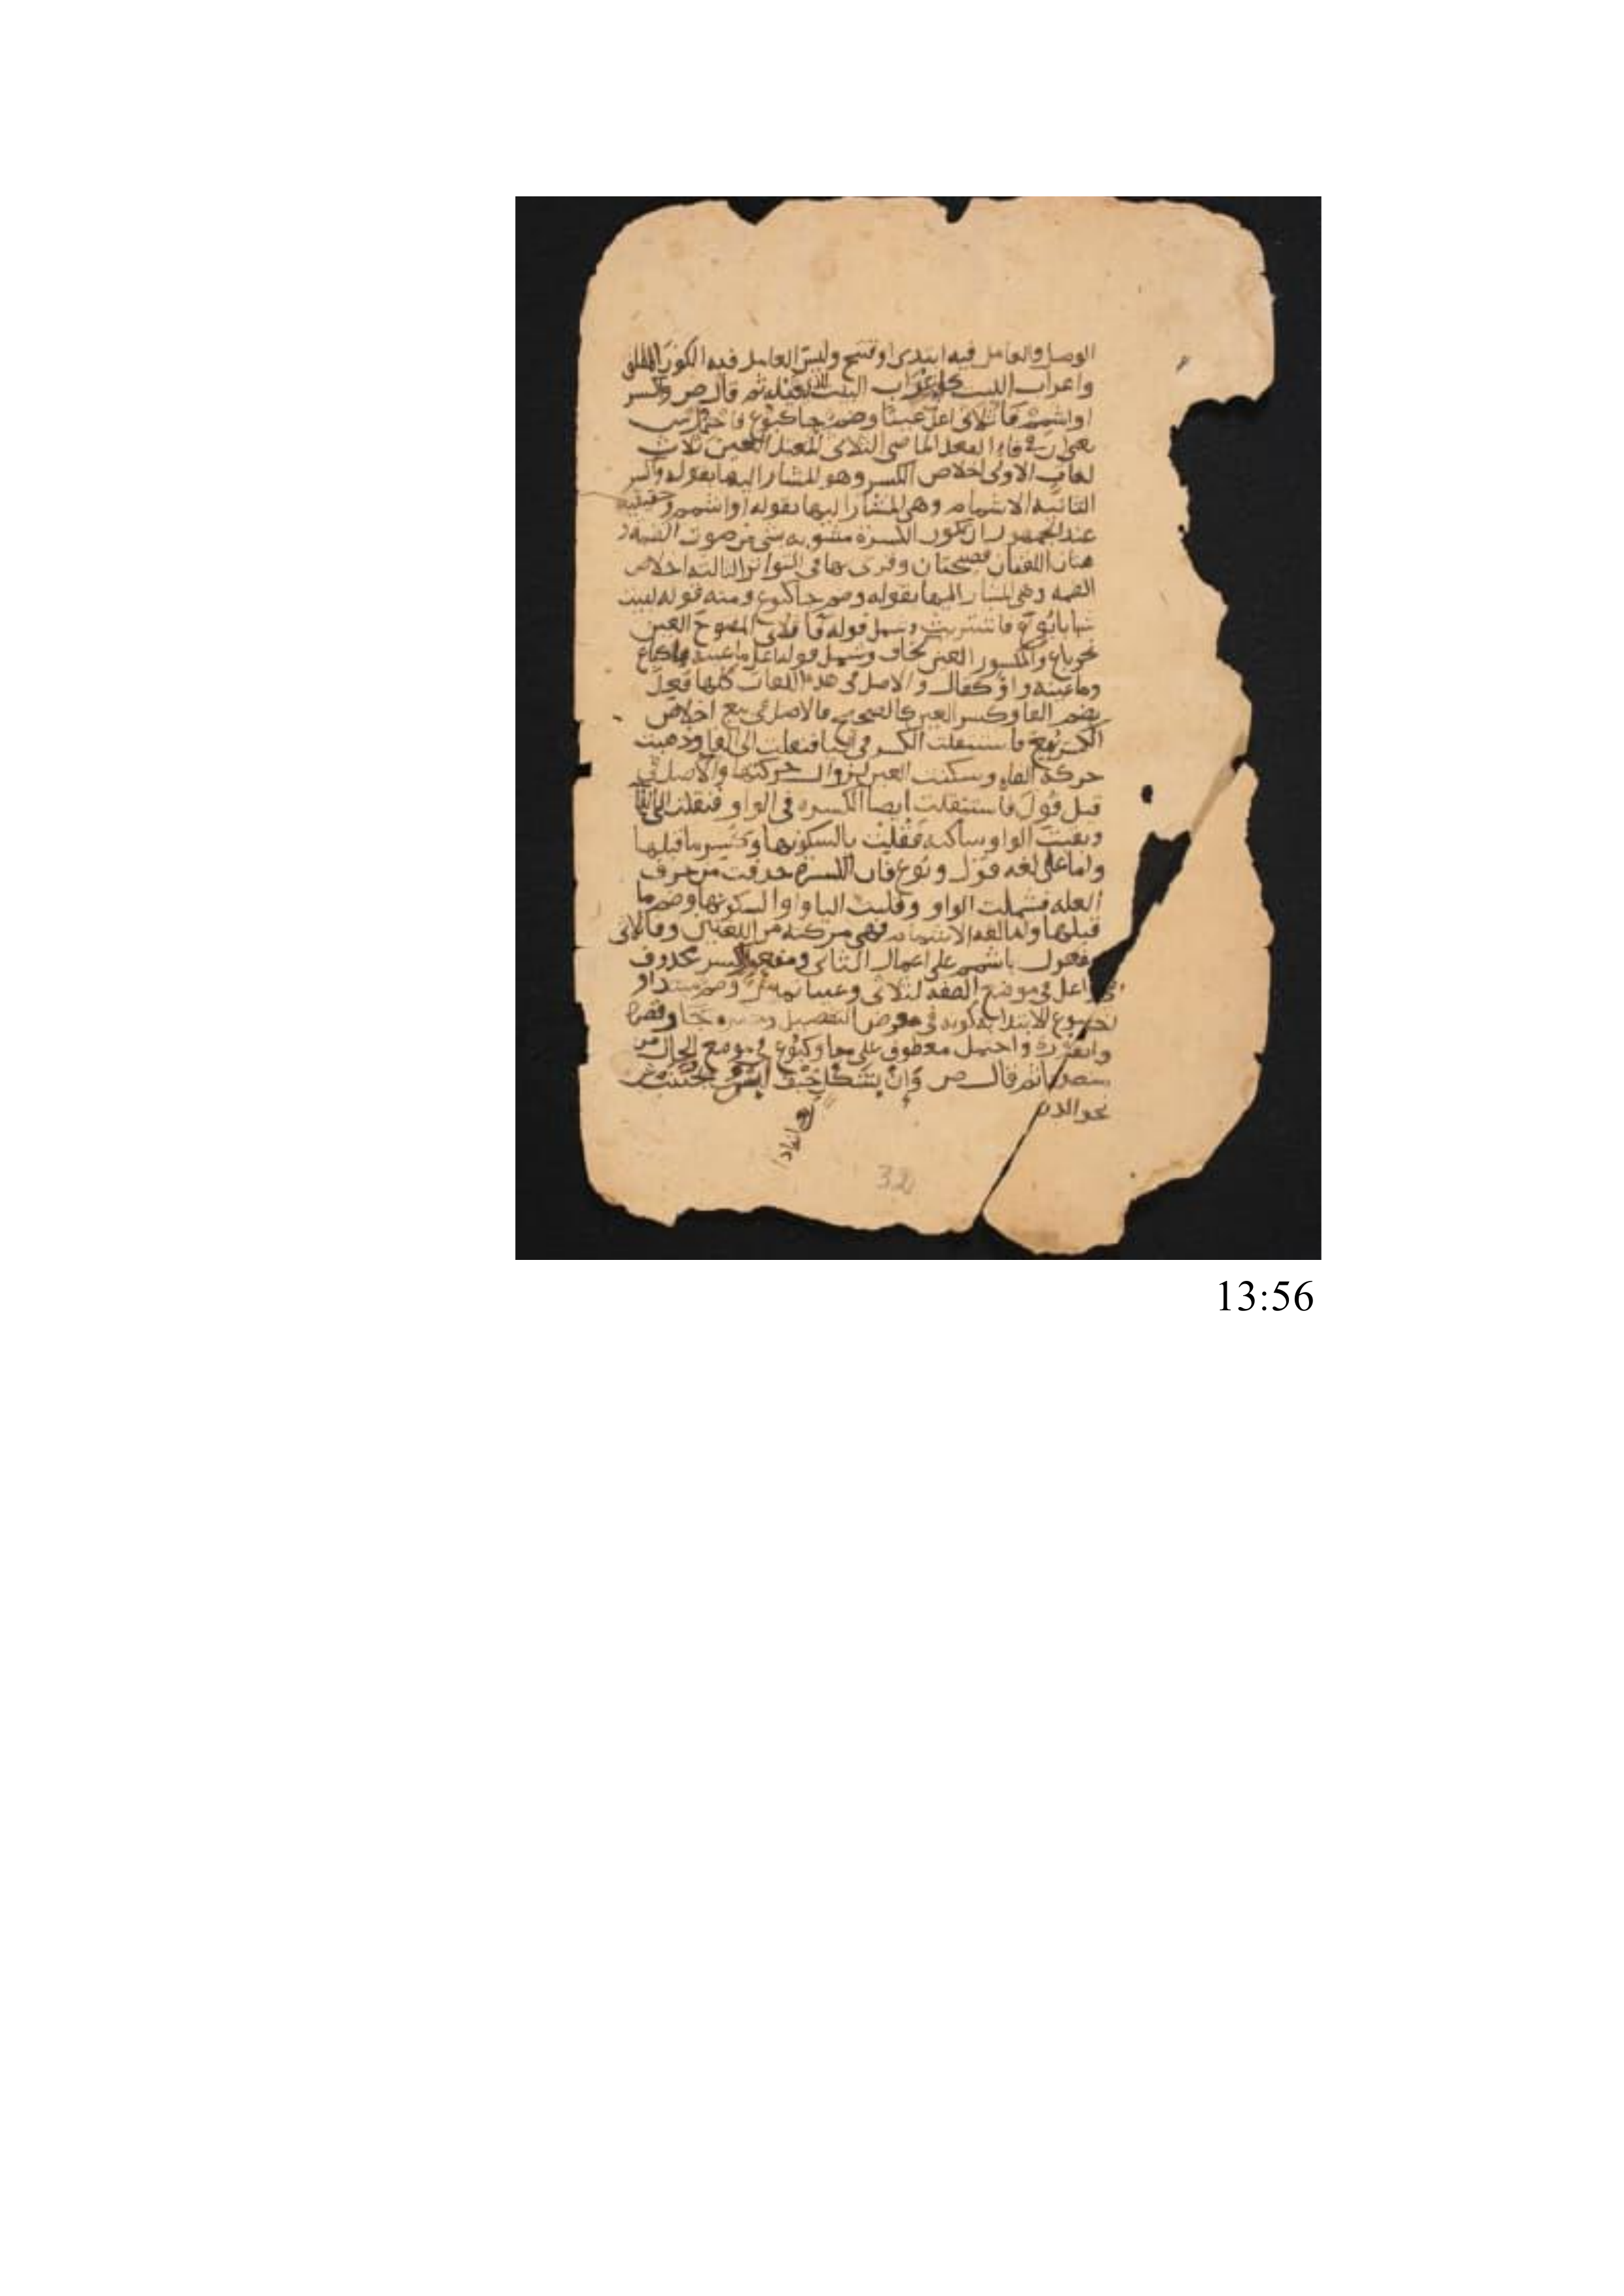 الوصل والعامل فيه ابتدى او فتح وليس العامل فيه الكون المطلق
واعراب البيت كاعراب البيت الذى قبله ثم قال ص واكسر
او اشمم فا ثلاثى اعل عينا وضم جا كبوع فاحتمل ش
يعنى ان فى فاء الفعل الماضى الثلاثى المعتل العين ثلاث
لغات الاولى اخلاص الكسر وهو المشار اليها بقوله واكسر
الثانيه الاشمام وهى المشار اليها بقوله او اشمم وحقيقته
عند الجمهور ان تكون الكسرة مشوبه بشى من صوت الضمه و
هتان اللغتان فصيحتان وقرى بها فى التواتر الثالثه اخلاص
الضمه وهى المشار اليها بقوله وضم جا كبوع ومنه قوله ليت
شبابا بوع فاشتريت وشمل قوله فا ثلاثى المفتوح العين
نحو باع والمكسور العين كخاف وشمل قوله اعل ما عينه ياء كباع
وما عينه واو كقال والاصل فى هذه اللغات كلها فعل
بضم الفا وكسر العين كالصحيح فالاصل فى بيع اخلاص
الكسر بيع فاستثقلت الكسره فى اليا فنقلت الى الفا وذهبت
حركة الفاء وسكنت العين لزوال حركتها والاصل فى
قيل قول فاستثقلت ايضا الكسره فى الواو فنقلت الى الفا
وبقيت الواو ساكنه فقلبت يا لسكونها وكسر ما قبلها
واما على لغه قول وبوع فان الكسرة حذفت من حرف
العله فسلمت الواو وقلبت اليا واوا لسكونها وضم ما
قبلها واما لغه الاشمام فهى مركبه من اللغتين وفا ثلاثى
مفعول باشمم على اعمال الثانى ومفعول اكسر محذوف
واعل فى موضع الصفه لثلاثى وعينا تمييز وضم مبتدا و
لكونه فى معرض التفصيل وخبره جا وقصره
واحتمل معطوف على جا وكبوع فى موضع الحال من
ثم قال ص وان بشكل خيف لبس يجتنب ش
نحو الذى
32
13:56